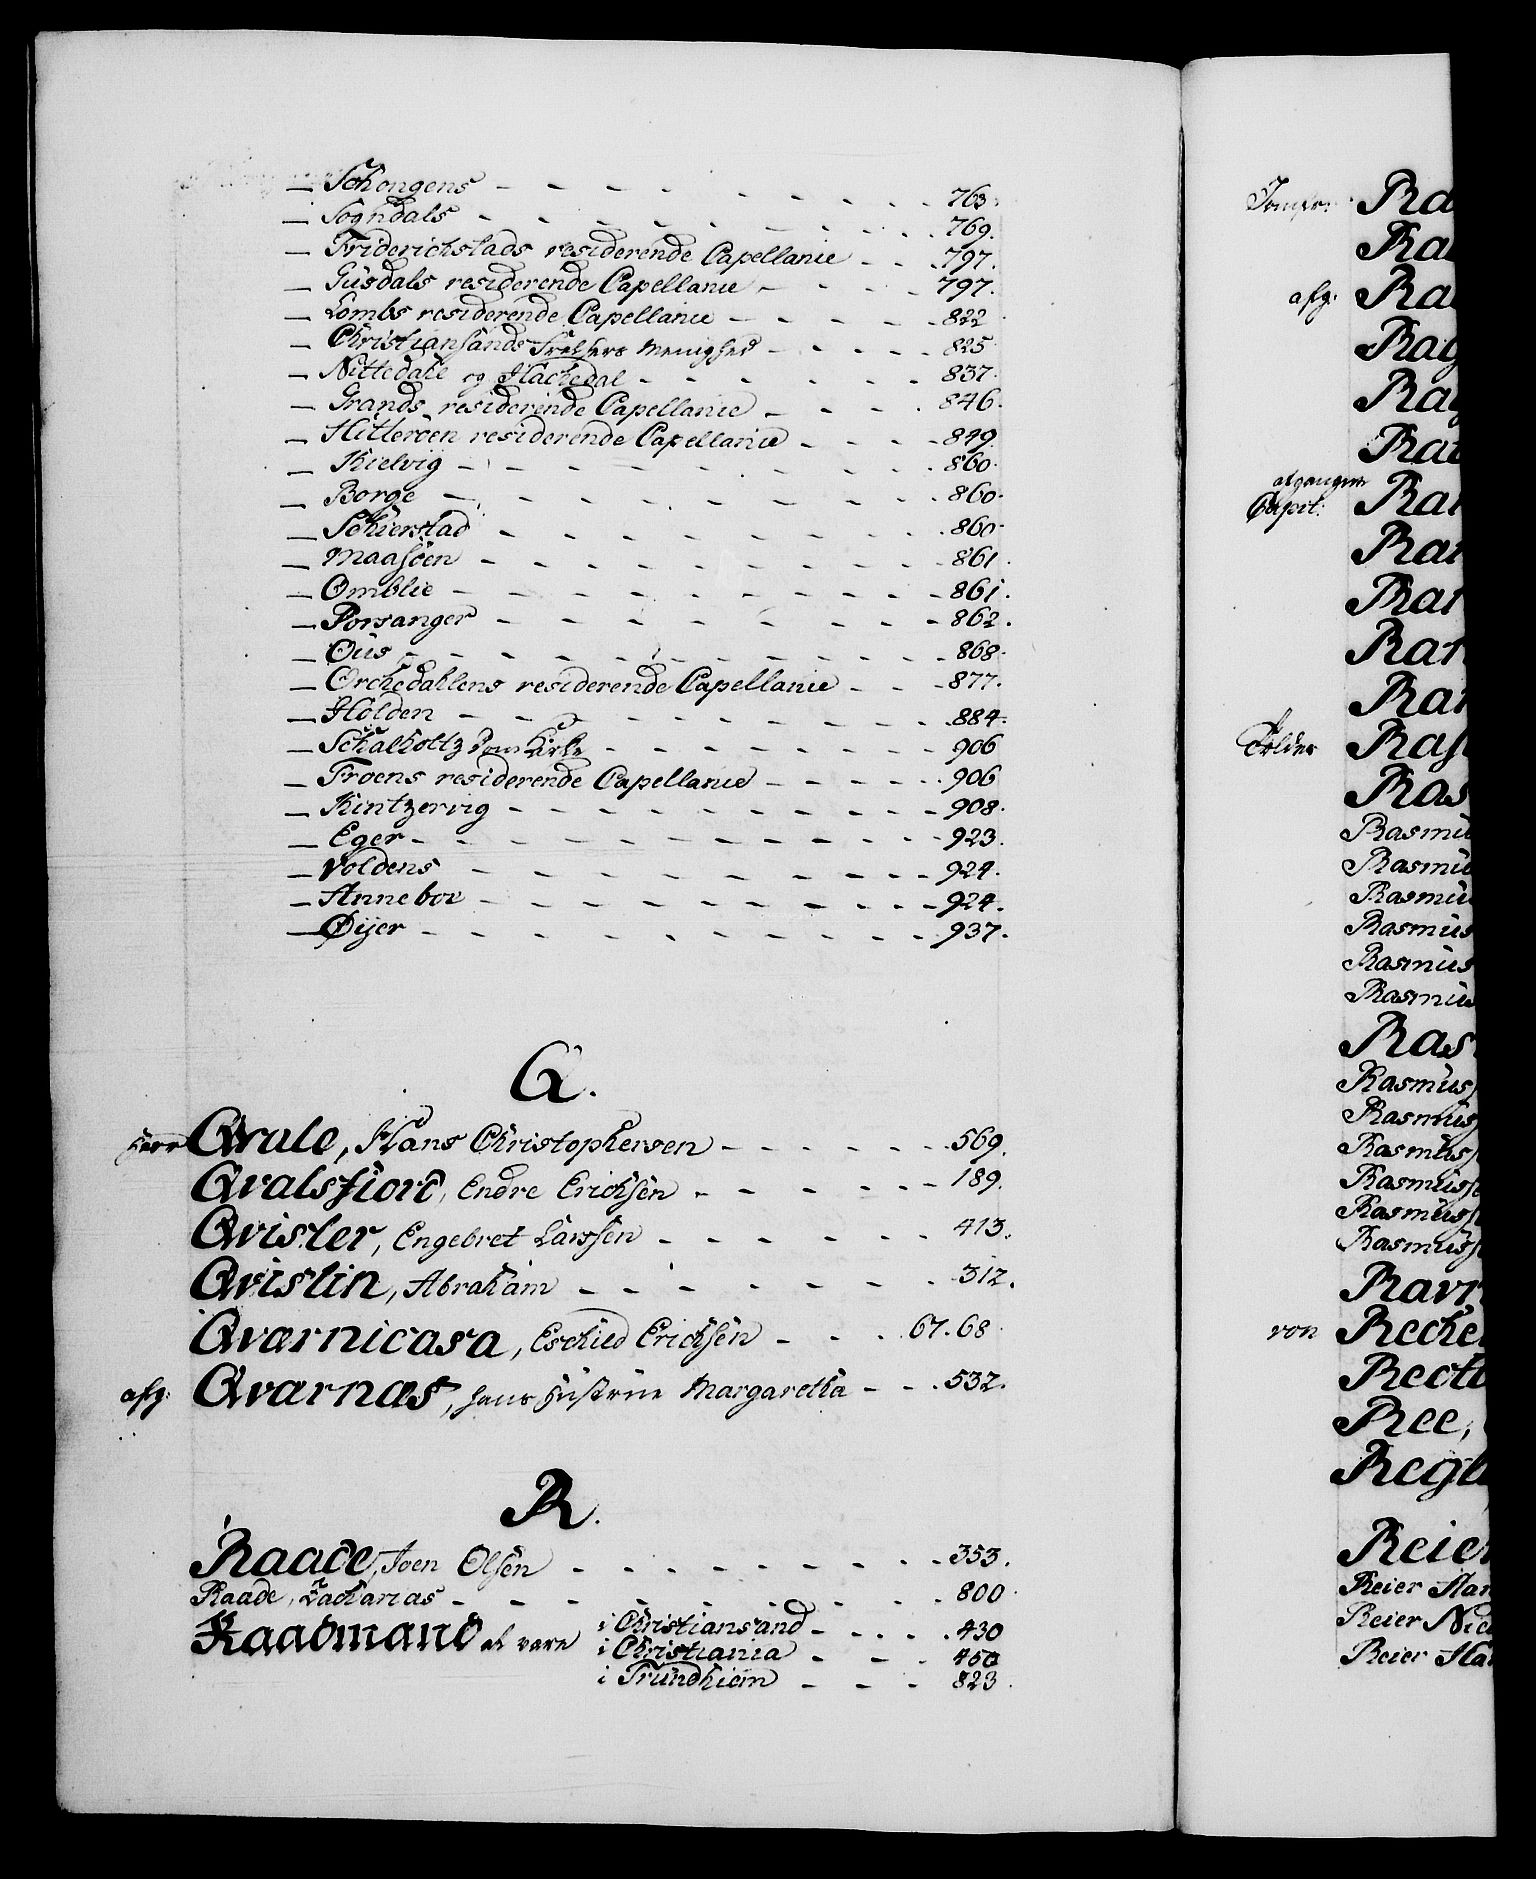 — Schongens - - - - - - - - - 763.
— Soghdals - - - - - - - - - 769.
— Friderichstads residerende Capellanie - - - 797.
— Gusdals residerende Capellanie - - - - 797.
— Lombs residerende Capellanie - - - - - 822
— Christiansands Frelsers Menighed - - - - 825
— Nittedahl og Hachedal - - - - - - - 837.
— Grands residerende Capellanie - - - - 846.
— Hitteröen residerende Capellanie - - - - 849.
— Kielvig - - - - - - - - - - 860.
— Borge - - - - - - - - - - 860.
— Schierstad - - - - - - - - - 860.
— Maasöen - - - - - - - - - - 861.
— Omblie - - - - - - - - - - 861.
— Porsanger - - - - - - - - - 862.
— Ous - - - - - - - - - - - 868.
— Orchedahlens residerende Capellanie - - - 877.
— Holden - - - - - - - - - - 884.
— Schalholtz Dom Kirke - - - - - - - 906
— Froens residerende Capellanie - - - - - 906
— Kintzervig - - - - - - - - - 908.
— Eger - - - - - - - - - - - 923.
— Voldens - - - - - - - - - - 924.
— Anneboe - - - - - - - - - - 924.
— Øyer - - - - - - - - - - - 937.
Q.
Herr Qvale, Hans Christophersen - - - - - - 569.
Qvalsfiord, Endre Erichsen - - - - - - - 189.
Qvisler, Engebret Larssen - - - - - - - 413.
Qvistin, Abraham - - - - - - - - 312.
Qværnicasa, Eschild Erichsen - - - 67. 68
afg: Qvarnæs, hans Hustrue Margaretha - - - 532.
R.
Raade, Joen Olsen - - - - - - - - - 353.
Raade, Zacharias - - - - - - - - - 800
Raadmand at være i Christiansand - - - - 430
i Christiania - - - 450
i Trundhiem - - - 823.
Ra
Ra
afg: Ra
Rag
Ra
Ra
afgangen
Capit: Ra
Ra
Ra
Ra
Ra
Tolder Ras
Ras
Rasmu
Rasmu
Rasmu
Rasmus
Rasmus
Rasmus
Ras
Rasmus
Rasmus
Rasmus
Rasmuss
Rasmuss
Rasmuss
Rav
von Reche
Rect
Ree,
Reg
Reier
Reier Han
Reier Nic
Reier Ha